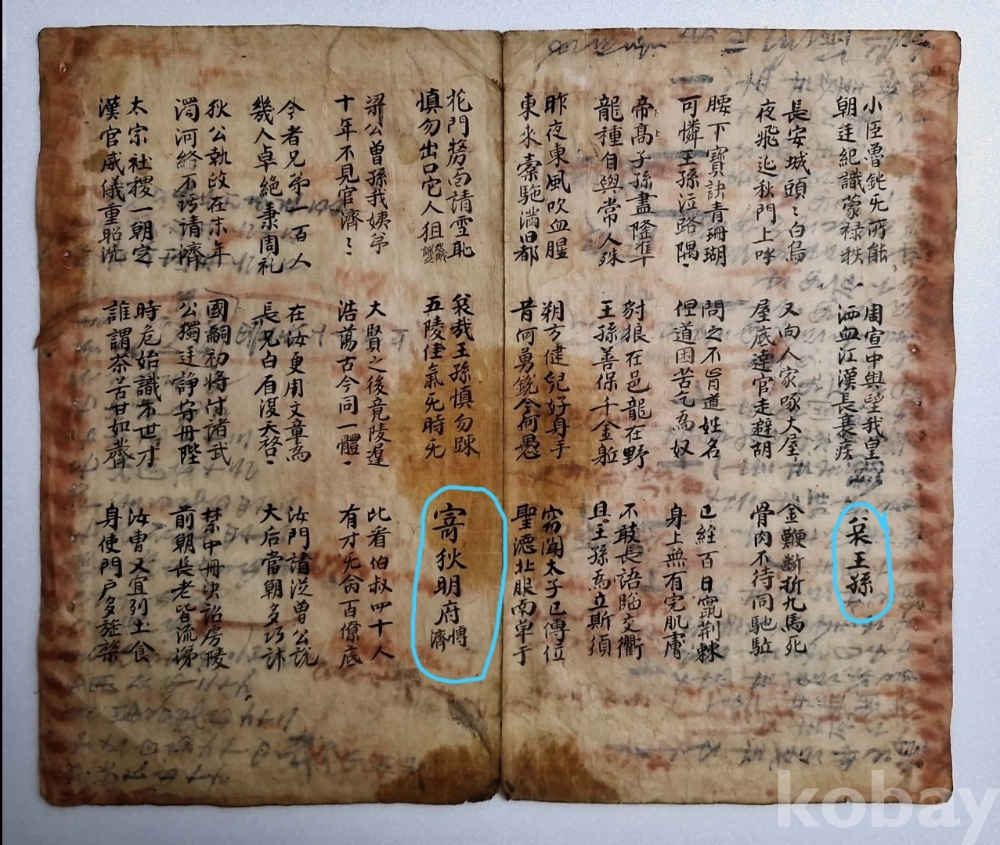 小臣魯鈍旡所能
朝廷紀識蒙禄秩
周宣中興望我皇
洒血江漢長衰疾
哀王孫
長安城頭〻白烏
夜飛延秋門上呼
又向人家啄大屋
屋底達官走避胡
金鞭斷折九馬死
骨肉不待同馳駈
腰下寶訣青珊瑚
可憐王孫泣路隅
問之不肯道姓名
但道困苦乞爲奴
已經百日竄荆棘
身上無有完肌膚
帝高子孫盡隆準
龍種自與常人殊
豺狼在邑龍在野
王孫善保千金軀
不敢長語臨交衢
且王孫爲立斯須
昨夜東風吹血腥
東來橐駞滿旧都
朔方健兒好身手
昔何勇銳今何愚
窃聞太子已傳位
聖德北服南单于
花門剺面請雪恥
慎勿出口它人狙
哀哉王孫慎勿踈
五陵佳氣旡時旡
寄狄明府博濟
梁公曾孫我姨弟
十年不見官濟〻
大賢之後竟陵遲
浩蕩古今同一體
此看伯叔四十人
有才旡命百僚底
今者兄弟一百人
幾人卓絶秉周礼
在汝更用文章爲
長兄白眉復天啓
汝門請從曾公說
太后當朝多巧詆
狄公執政在末年
濁河終不汚清濟
國嗣初將付諸武
公獨廷諍守丹陛
禁中冊决詔房陵
前朝長老皆流涕
太宗社稷一朝定
漢官威儀重昭洗
時危始識不世才
誰謂荼苦甘如薺
汝曹又宜列土食
身使門戶多旌棨
kobay